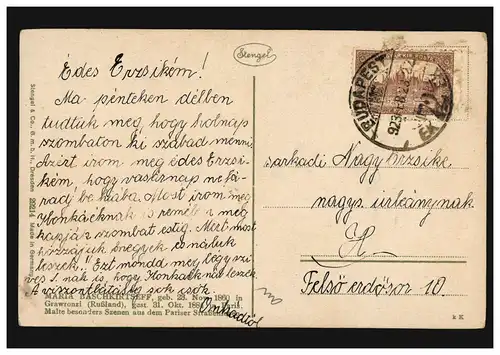 Stengel
Édes Erzsikém!
Ma pénteken délben
tudtuk meg, hogy holnap
szombaton ki szabad menni.
Azért irom meg édes Erzsi-
kém, hogy vasárnap ne ki-
rádj be hiába. Most irom meg
Honkáéknak is remélem meg
kapják szombat estig. Mert most
hozzájuk megyek és náluk
leszek." Ezt mondd meg légy szi-
ves I.-nak is, hogy Honkáéknál leszek.
A viszontlátásig sok csók
MARIA BASCHKIRTSEFF, geb. 23. Nov. 1860 in
Grawronzi (Rußland), gest. 31. Okt. 1884 Paris.
Malte besonders Szenen aus dem Pariser Straßenleben.
Stengel & Co., G. m. b. H., Dresden 29214 Made in Germany
BUDAPEST
923
sarkadi Nagy Erzsike
nagys. urleánynak
H.
Felső erdősor 10.
k K